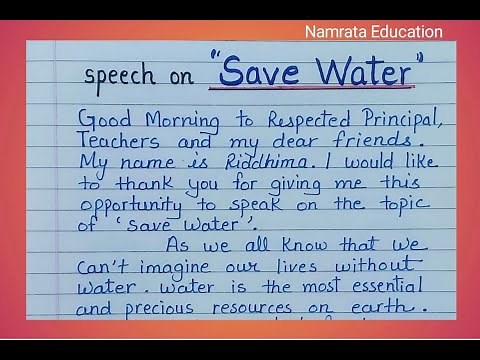 Namrata Education
speech on "Save Water"
Good Morning to Respected Principal,
Teachers and my dear friends.
My name is Riddhima. I would like
to thank you for giving me this
opportunity to speak on the topic
of 'Save Water'.
As we all know that we
can't imagine our lives without
water. Water is the most essential
and precious resources on earth.